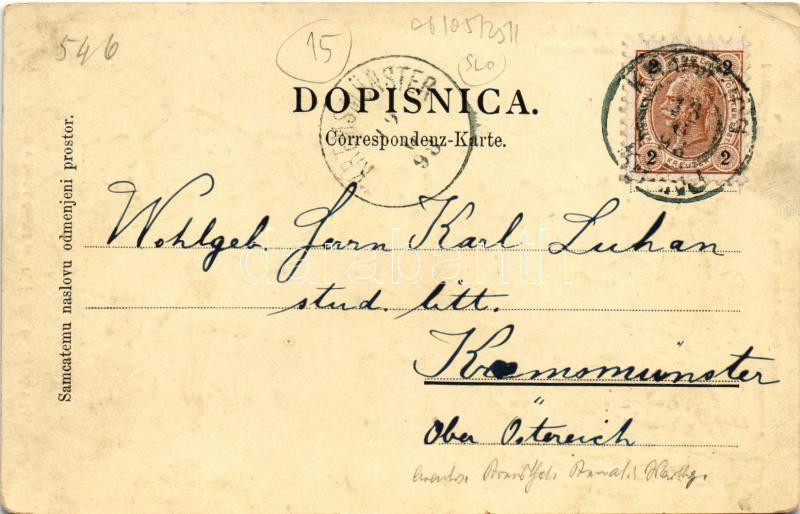 546
15
06105/2511
SLO
DOPISNICA.
Correspondenz-Karte.
KREMSMÜNSTER
2 2
2 2
Samcatemu naslovu odmenjeni prostor.
Wohlgeb. Herrn Karl Luhan
stud. litt.
Kremsmünster
Ober Östereich
darabanth